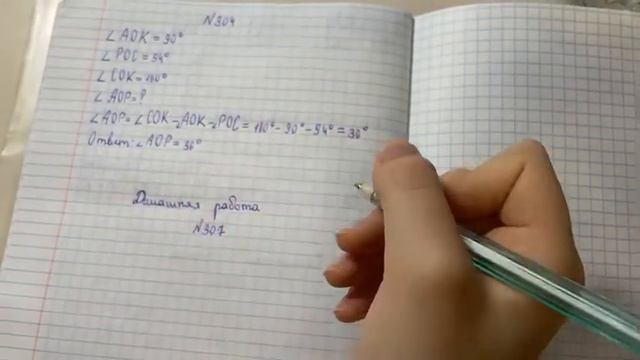 №304
∠AOK = 90°
∠POC = 54°
∠COK = 180°
∠AOP = ?
∠AOP = ∠COK - ∠AOK - ∠POC = 180° - 90° - 54° = 36°
Ответ: ∠AOP = 36°
Домашняя работа
№307